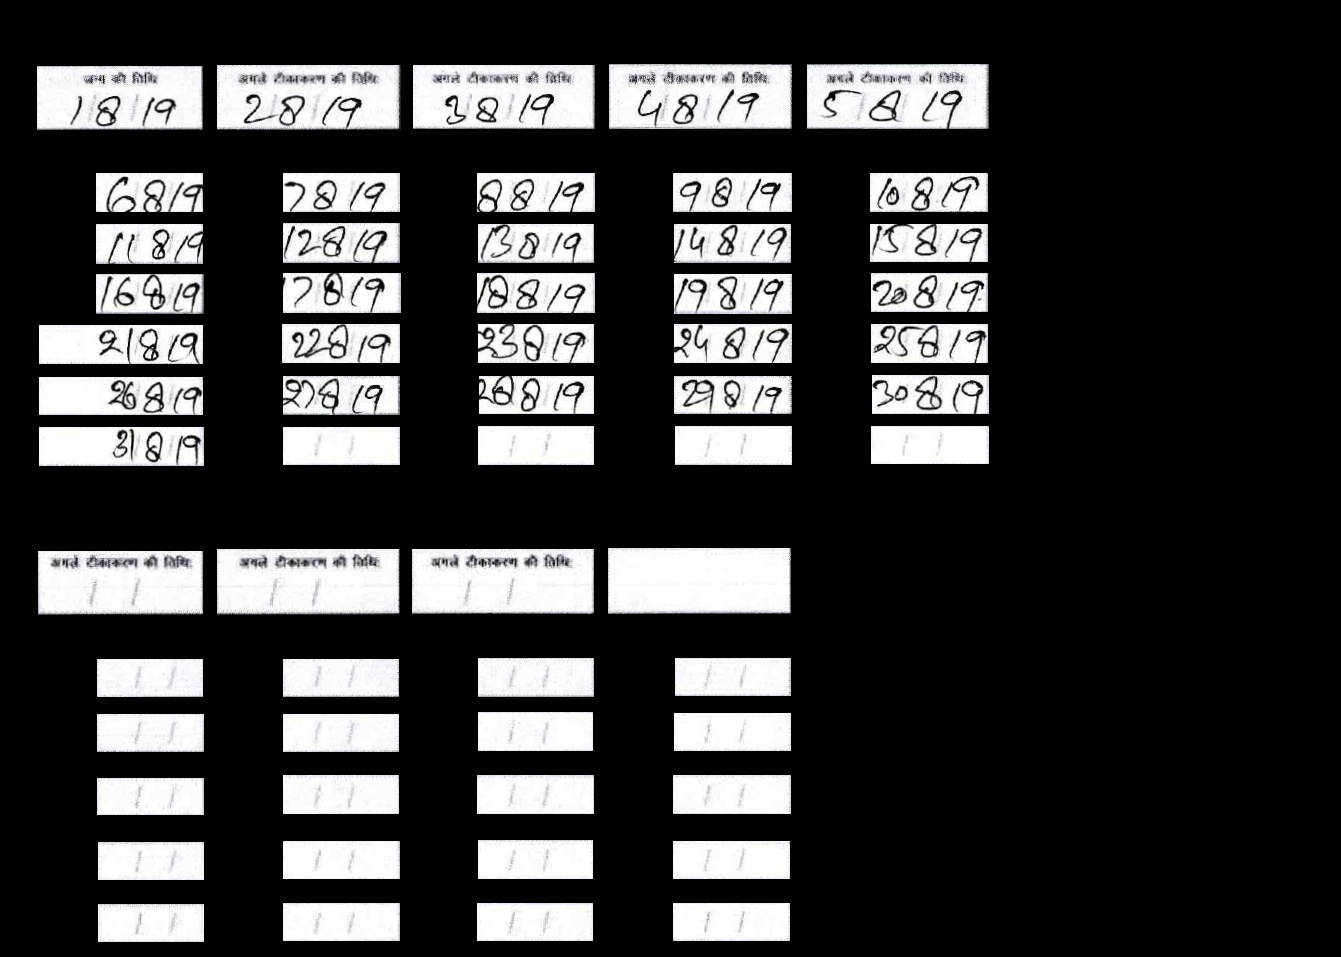 जन्म की तिथि अगले टीकाकरण की तिथि: अगले टीकाकरण की तिथि: अगले टीकाकरण की तिथि: अगले टीकाकरण की तिथि:
1/8/19 2/8/19 3/8/19 4/8/19 5/8/19
6/8/19 7/8/19 8/8/19 9/8/19 10/8/19
11/8/19 12/8/19 13/8/19 14/8/19 15/8/19
16/8/19 17/8/19 18/8/19 19/8/19 20/8/19
21/8/19 22/8/19 23/8/19 24/8/19 25/8/19
26/8/19 27/8/19 28/8/19 29/8/19 30/8/19
31/8/19 / / / / / / / /
अगले टीकाकरण की तिथि: अगले टीकाकरण की तिथि: अगले टीकाकरण की तिथि:
/ / / / / /
/ / / / / / / /
/ / / / / / / /
/ / / / / / / /
/ / / / / / / /
/ / / / / / / /